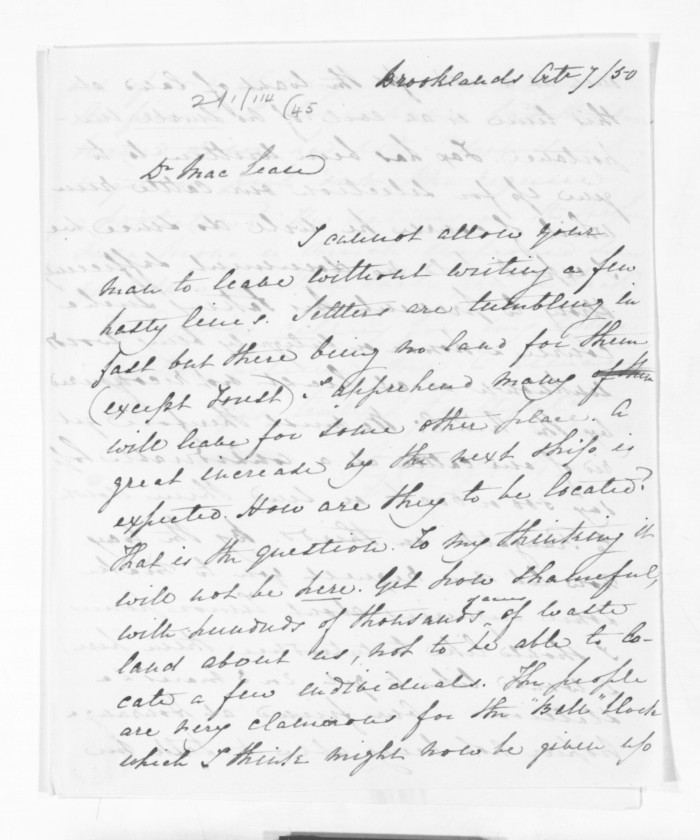 Brooklands Octr 7/50
Dr Mac Lean
I cannot allow your
man to leave without writing a few
hasty lines. Settlers are tumbling in
fast but there being no land for them
(except Forest) I apprehend many of them
will leave for some other place. A
great increase by the next ship is
expected. How are they to be located?
That is the question. To my thinking it
will not be here. Yet how shameful,
with hundreds of thousands acres of waste
land about us, not to be able to lo-
cate a few individuals. The people
are very clamorous for the "Bell" block
which I think might now be given up